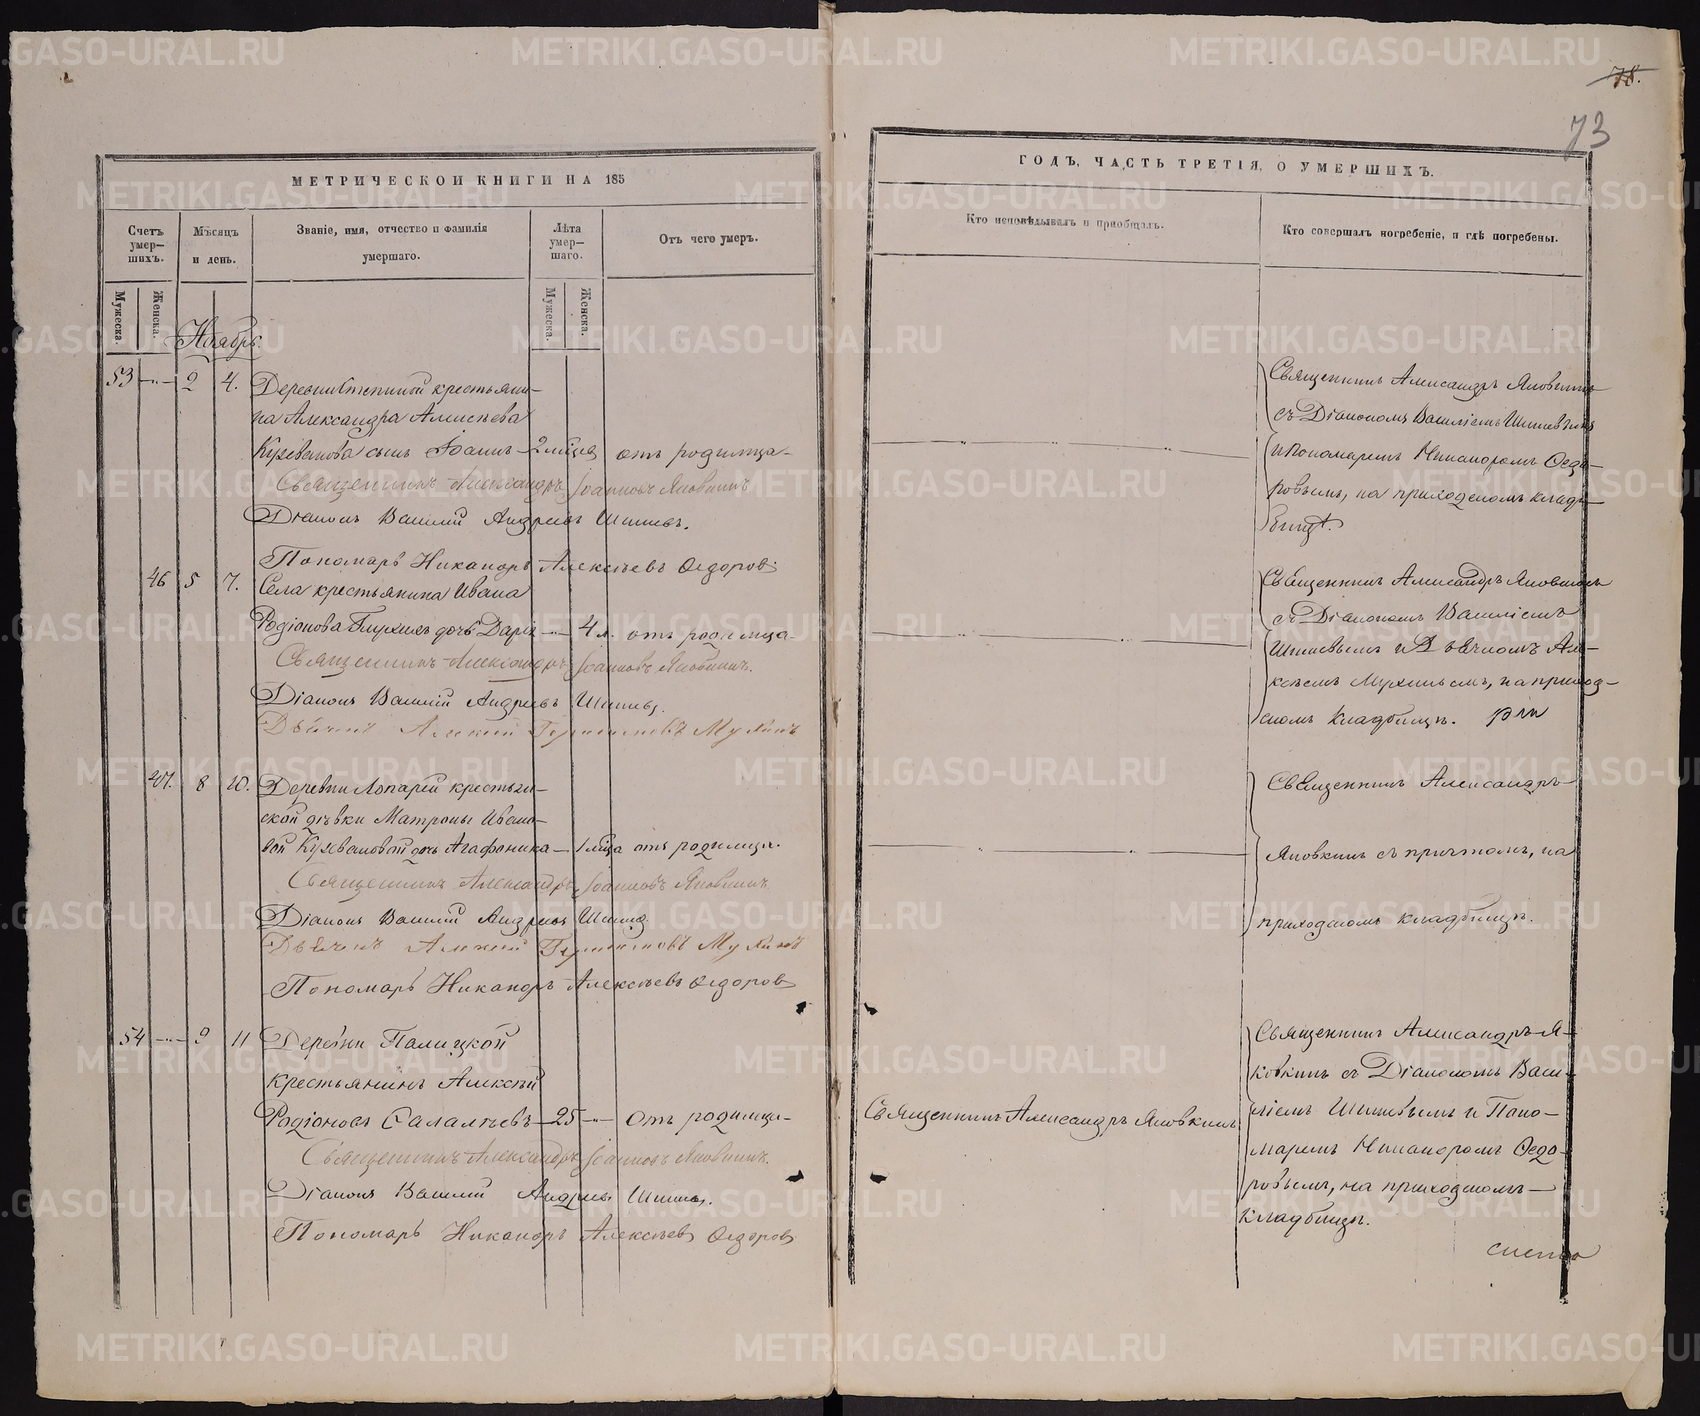 78.
73
МЕТРИЧЕСКОЙ КНИГИ НА 185
ГОДЪ, ЧАСТЬ ТРЕТІЯ, О УМЕРШИХЪ.
Счетъ умер— шихъ.
Мѣсяцъ и день.
Званіе, имя, отчество и фамилія умершаго.
Лѣта умер— шаго.
Отъ чего умеръ.
Кто исповѣдывалъ и пріобщалъ.
Кто совершалъ погребеніе, и гдѣ погребены.
Мужеска.
Женска.
Мужеска.
Женска.
Ноябрь.
53 2 4. крестьяни-
на Александра Алексѣева
сынъ Іоаннъ — 2 мѣсяца отъ родимца-
Священникъ Александръ Іоанновъ Яковкинъ
Діаконъ Василій Андреевъ
Пономарь Никаноръ Алексѣевъ Ѳедоровъ
Священникъ Александръ Яковкинъ
съ Діакономъ Василіемъ
и Пономаремъ Никаноромъ Ѳедо-
ровымъ, на приходскомъ клад-
бищѣ.
46 5 7. Села крестьянина Ивана
Родіонова дочь Дарія — 4 л. отъ родимца-
Священникъ Александръ Іоанновъ Яковкинъ.
Діаконъ Василій Андреевъ
Дьячекъ Алексій Мухинъ
Священникъ Александръ Яковкинъ
съ Діакономъ Василіемъ
и Дьячкомъ Але-
ксѣемъ Мухинымъ, на приход-
скомъ кладбищѣ.
47. 8 10. Деревни Лопарей крестьян-
ской дѣвки Матроны Ивано-
вой дочь Агафоника — отъ родимца.
Священникъ Александръ Іоанновъ Яковкинъ.
Діаконъ Василій Андреевъ
Дьячекъ Алексій Мухинъ
Пономарь Никаноръ Алексѣевъ Ѳедоровъ
Священникъ Александръ
Яковкинъ съ причтомъ, на
приходскомъ кладбищѣ.
54 9 11 Деревни Палицкой
крестьянинъ Алексѣй
Родіоновъ — 25 — отъ родимца-
Священникъ Александръ Іоанновъ Яковкинъ.
Діаконъ Василій Андреевъ
Пономарь Никаноръ Алексѣевъ Ѳедоровъ
Священникъ Александръ Яковкинъ
Священникъ Александръ Я-
ковкинъ съ Діакономъ Васи-
ліемъ и Поно-
маремъ Никаноромъ Ѳедо-
ровымъ, на приходскомъ
кладбищѣ.
METRIKI.GASO-URAL.RU